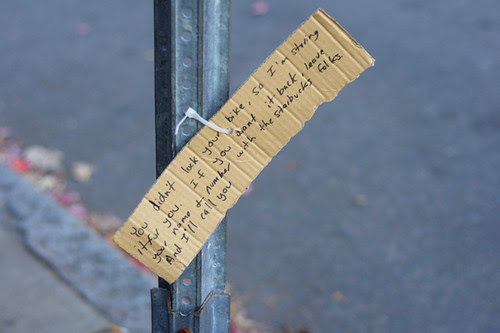 You didn't lock your bike, so I'm storing
it fur you. If you want it back leave
your name & number with the starbucks folks
And I'll call you